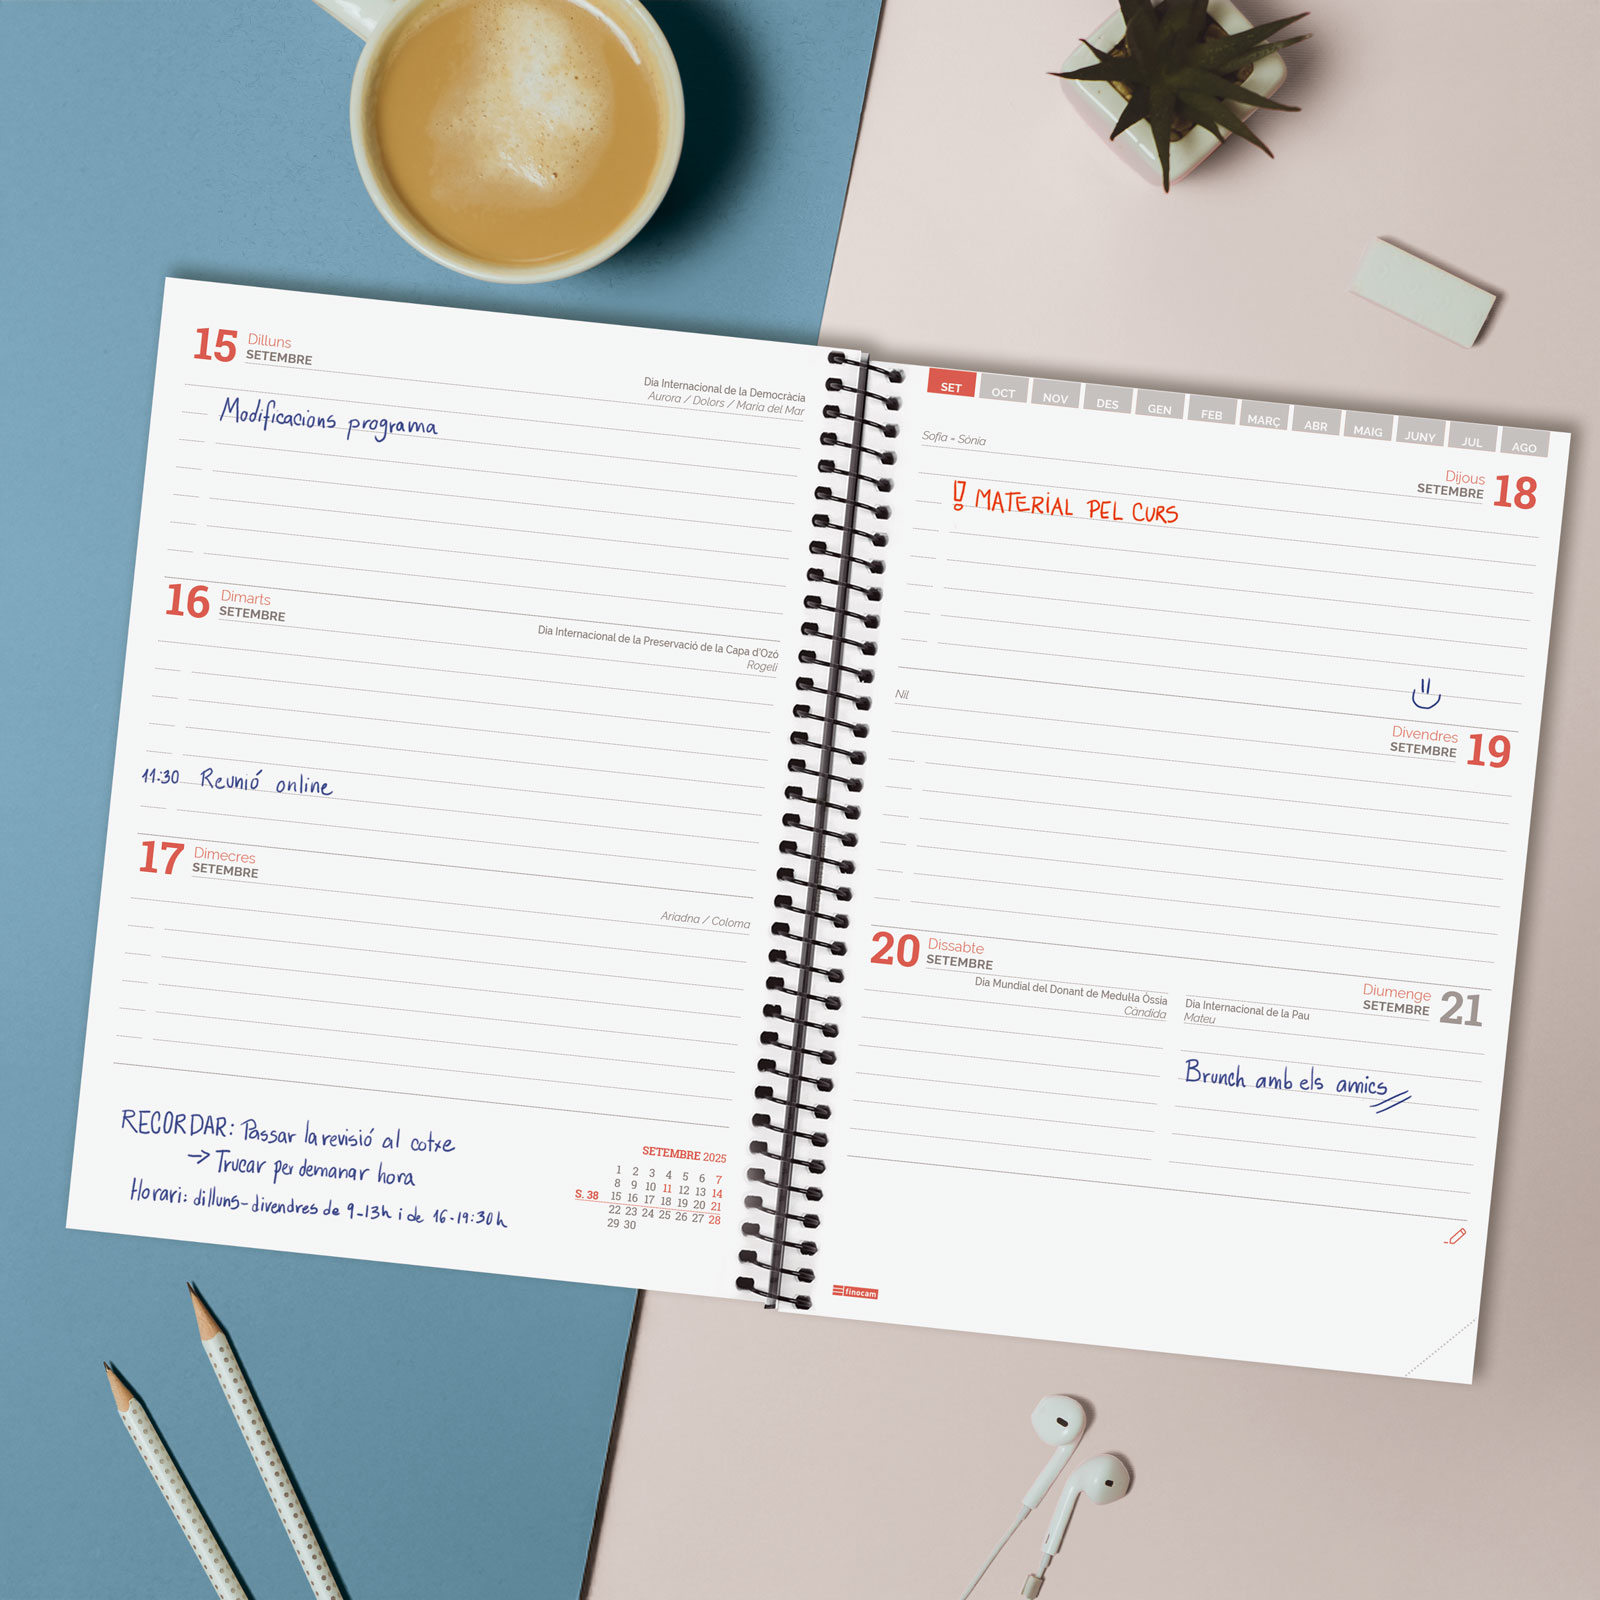 15 Dilluns
SETEMBRE
Dia Internacional de la Democràcia
Aurora / Dolors / Maria del Mar
Modificacions programa
16 Dimarts
SETEMBRE
Dia Internacional de la Preservació de la Capa d'Ozó
Rogeli
11:30 Reunió online
17 Dimecres
SETEMBRE
Ariadna / Coloma
RECORDAR: Passar la revisió al cotxe
→ Trucar per demanar hora
Horari: dilluns-divendres de 9-13h i de 16-19:30h
SETEMBRE 2025
1 2 3 4 5 6 7
8 9 10 11 12 13 14
S. 38 15 16 17 18 19 20 21
22 23 24 25 26 27 28
29 30
SET OCT NOV DES GEN FEB MARÇ ABR MAIG JUNY JUL AGO
Sofia - Sònia
Dijous 18
SETEMBRE
!! MATERIAL PEL CURS
Nil
Divendres 19
SETEMBRE
20 Dissabte
SETEMBRE
Dia Mundial del Donant de Medul·la Òssia
Càndida
Diumenge 21
SETEMBRE
Dia Internacional de la Pau
Mateu
Brunch amb els amics
finocam